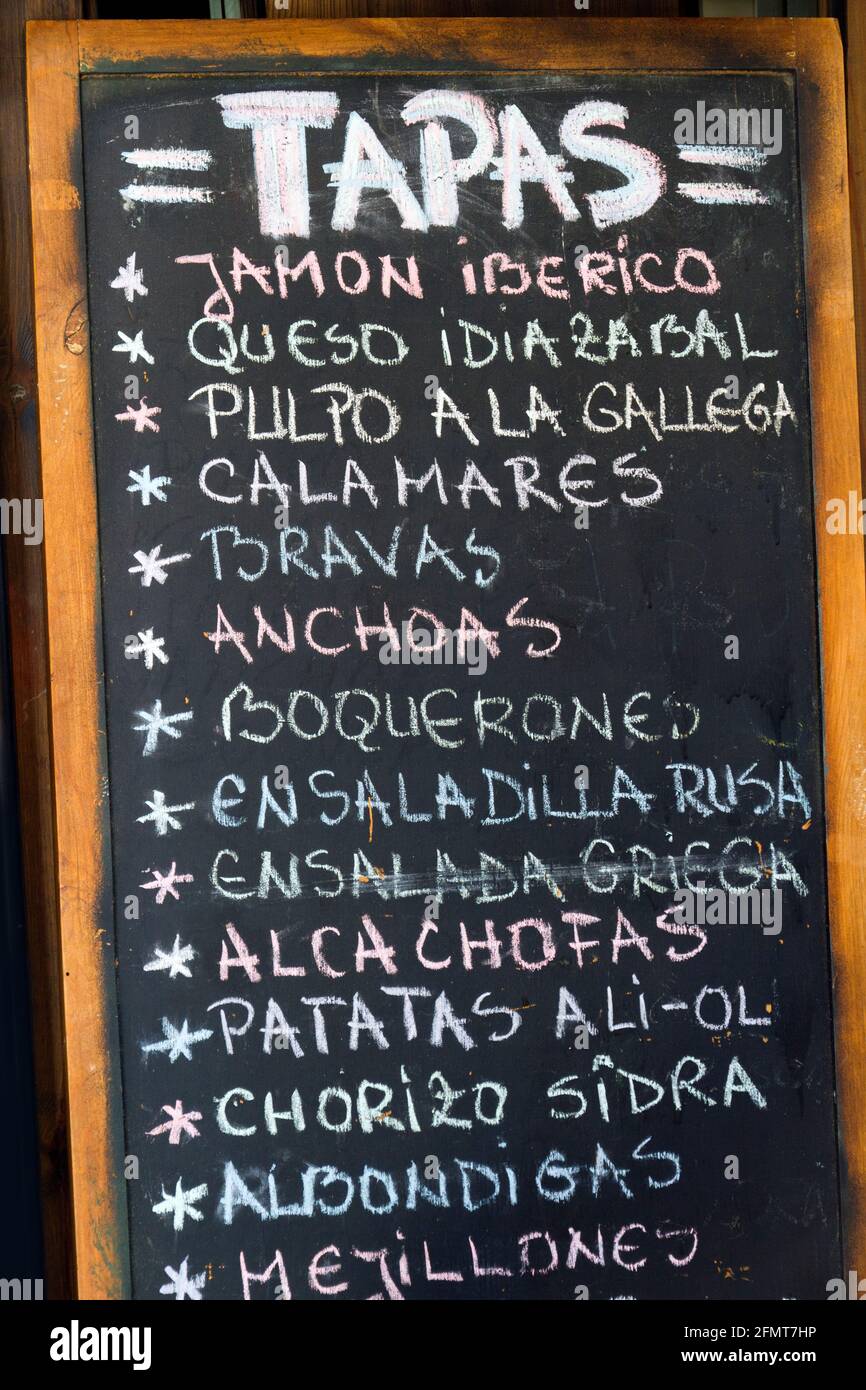 = TAPAS =
* JAMON IBERICO
* QUESO IDIAZABAL
* PULPO A LA GALLEGA
* CALAMARES
* BRAVAS
* ANCHOAS
* BOQUERONES
* ENSALADILLA RUSA
* ENSALADA GRIEGA
* ALCACHOFAS
* PATATAS ALI-OL
* CHORIZO SIDRA
* ALBONDIGAS
* MEJILLONES
alamy
Image ID: 2FMT7HP
www.alamy.com